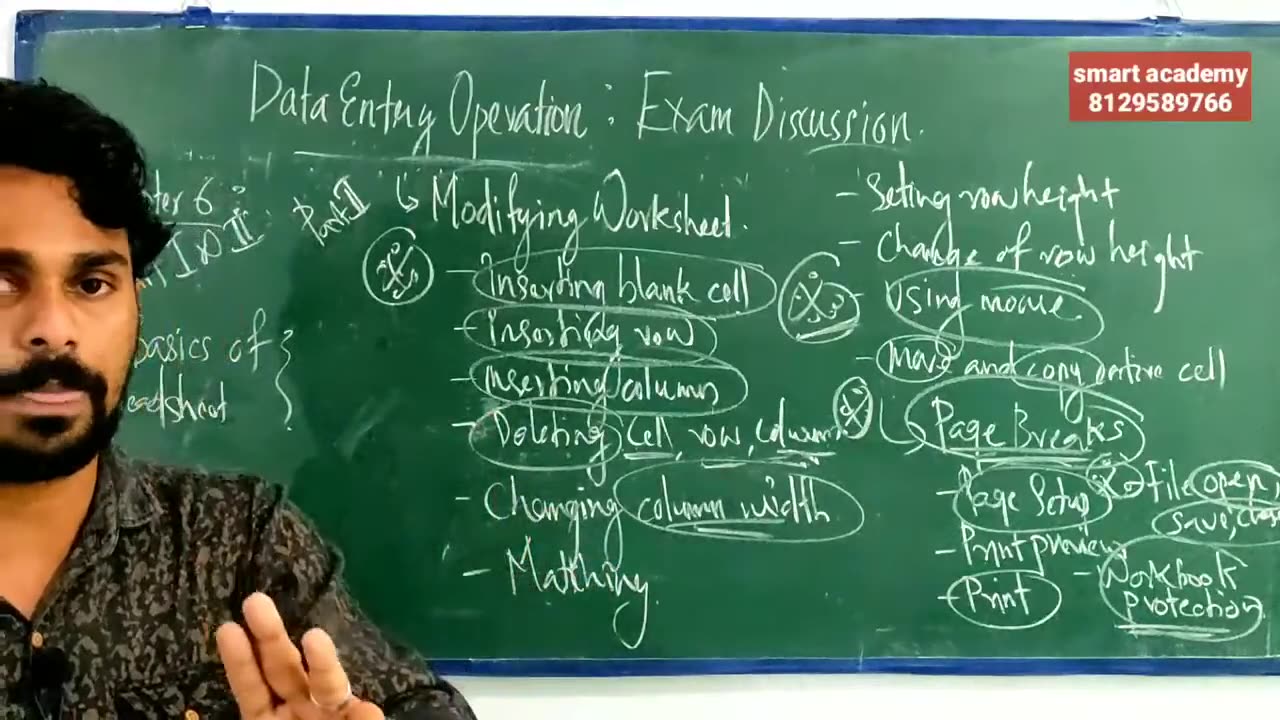 smart academy
8129589766
Data Entry Operation : Exam Discussion.
ter 6
I & II
basics of
eadsheet
Part II
Modifying Worksheet.
- Inserting blank cell
- Inserting row
- Inserting column
- Deleting cell, row, column
- Changing column width
- Matching
- Seting row height
- Change of row height
- Using mouse
- move and copy entire cell
Page Breaks
- Page Setup
- Print preview
- Print
- File open,
save, close
- Workbook
protection